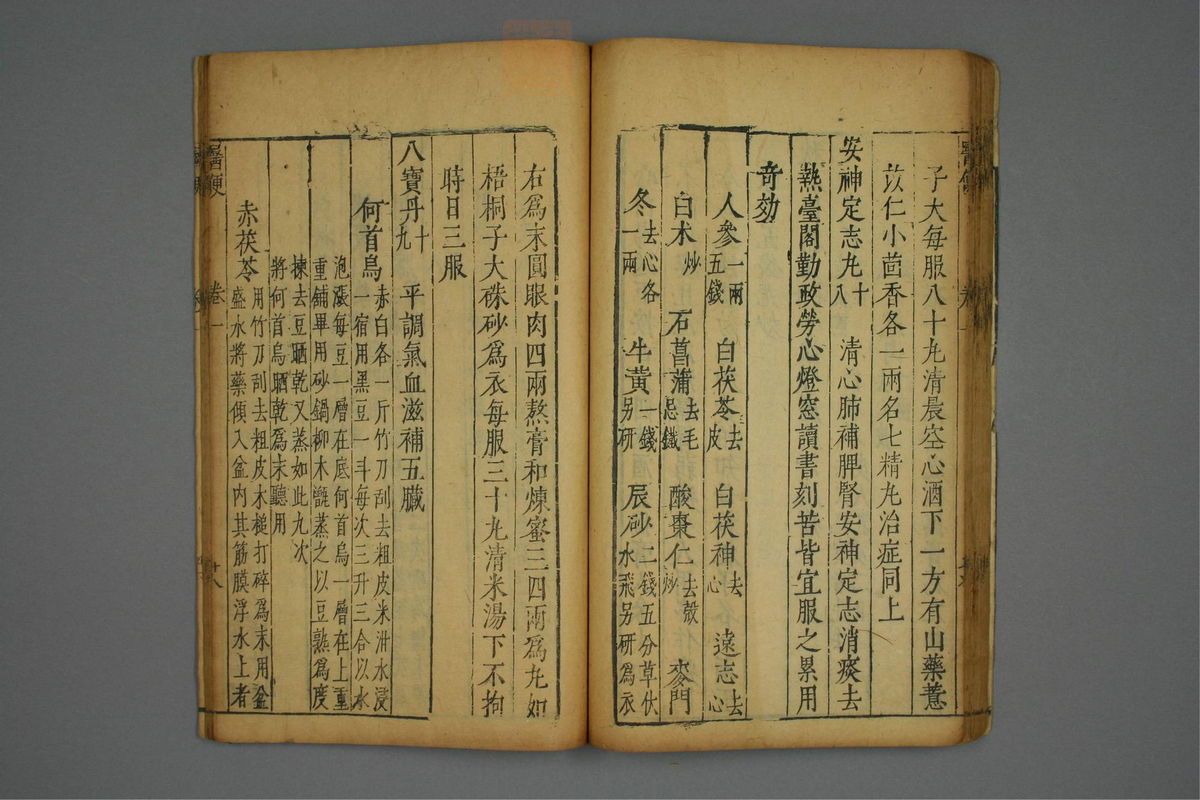 子大每服八十丸清晨空心酒下一方有山藥薏
苡仁小茴香各一兩名七精丸治症同上
安神定志丸十八 清心肺補脾腎安神定志消痰去
熱臺閣勤政勞心燈窓讀書刻苦皆宜服之累用
奇効
人參一兩五錢 白茯苓去皮 白茯神去心 遠志去心
白术炒 石菖蒲去毛忌鐵 酸棗仁去殼炒 麥門
冬去心各一兩 牛黃一錢另研 辰砂二錢五分草伏水飛另研爲衣
右爲末圓眼肉四兩熬膏和煉蜜三四兩爲丸如
梧桐子大硃砂爲衣每服三十丸清米湯下不拘
時日三服
八寶丹十九 平調氣血滋補五臟
何首烏赤白各一斤竹刀刮去粗皮米泔水浸一宿用黑豆一斗每次三升三合以水
泡漲每豆一層在底何首烏一層在上重重鋪畢用砂鍋柳木甑蒸之以豆熟爲度
揀去豆晒乾又蒸如此九次將何首烏晒乾爲末聽用
赤茯苓用竹刀刮去粗皮木槌打碎爲末用盆盛水將藥傾入盆內其筋膜浮水上者
醫便 卷一 廿八